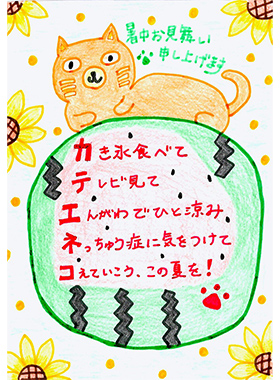 暑中お見舞い
申し上げます
カき氷食べて
テレビ見て
エんがわでひと涼み
ネっちゅう症に気をつけて
コえていこう、この夏を！